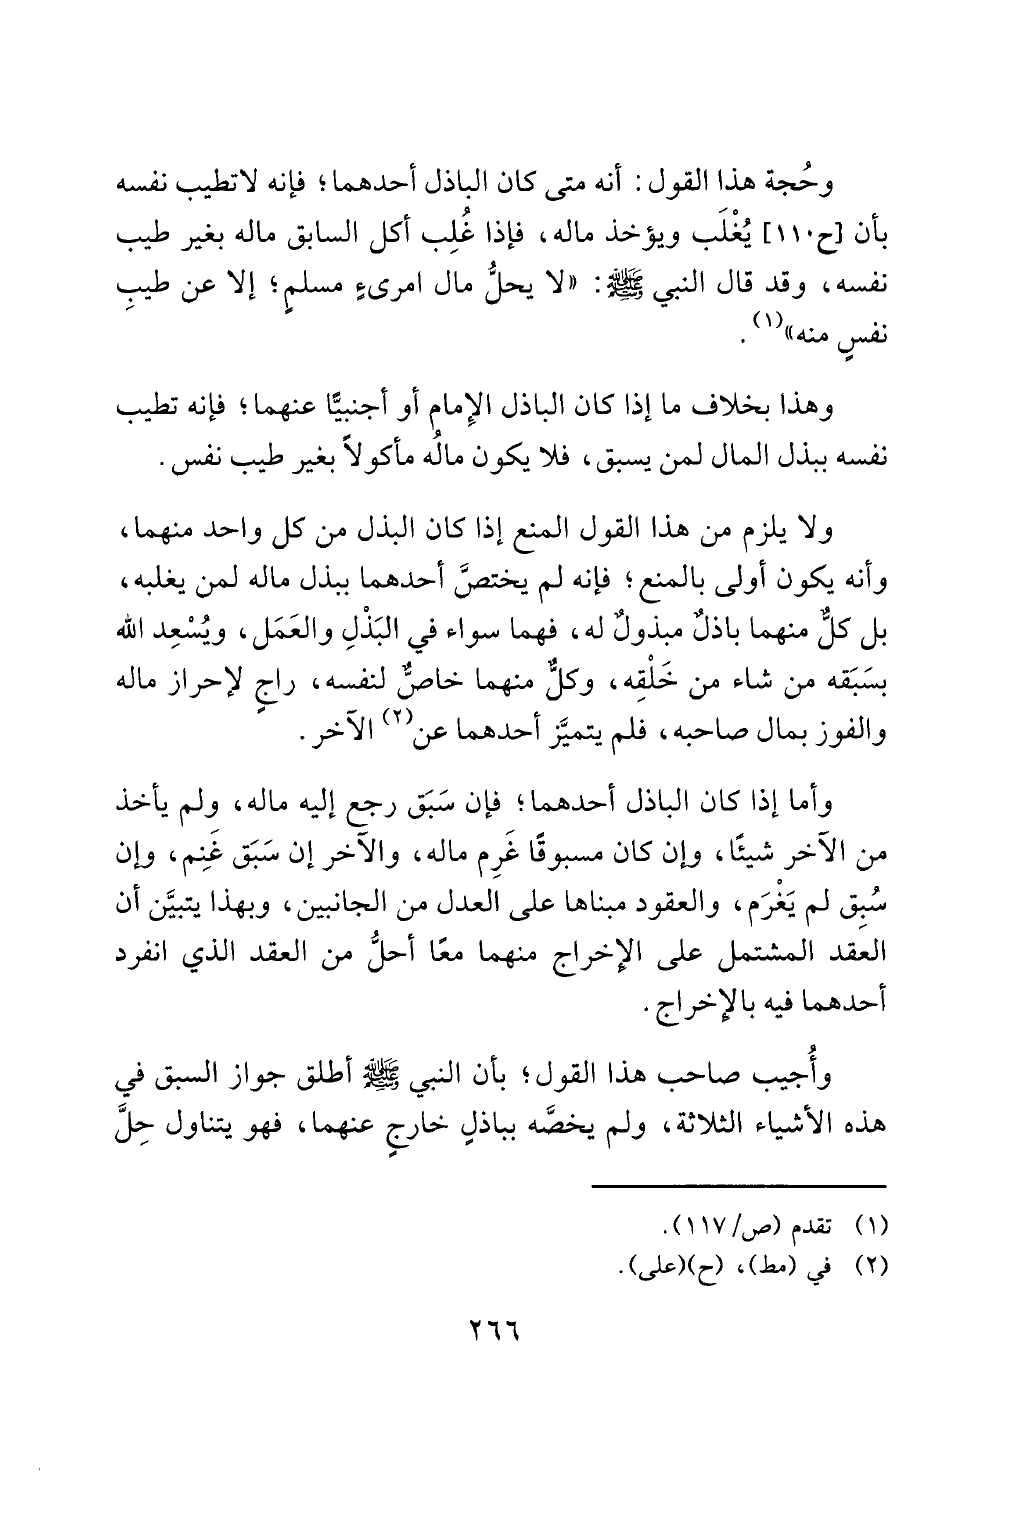 وحُجة هذا القول: أنه متى كان الباذل أحدهما؛ فإنه لاتطيب نفسه
بأن [ح١١٠] يُغْلَب ويؤخذ ماله، فإذا غُلِب أكل السابق ماله بغير طيب
نفسه، وقد قال النبي ﷺ: «لا يحلُّ مال امرىءٍ مسلمٍ؛ إلا عن طيبِ
نفسٍ منه»(١).
وهذا بخلاف ما إذا كان الباذل الإمام أو أجنبيًّا عنهما؛ فإنه تطيب
نفسه ببذل المال لمن يسبق، فلا يكون مالُه مأكولاً بغير طيب نفس.
ولا يلزم من هذا القول المنع إذا كان البذل من كل واحد منهما،
وأنه يكون أولى بالمنع؛ فإنه لم يختصَّ أحدهما ببذل ماله لمن يغلبه،
بل كلٌّ منهما باذلٌ مبذولٌ له، فهما سواء في البَذْلِ والعَمَل، ويُسْعِد الله
بسَبَقه من شاء من خَلْقِه، وكلٌّ منهما خاصٌّ لنفسه، راجٍ لإحراز ماله
والفوز بمال صاحبه، فلم يتميَّز أحدهما عن(٢) الآخر.
وأما إذا كان الباذل أحدهما؛ فإن سَبَق رجع إليه ماله، ولم يأخذ
من الآخر شيئًا، وإن كان مسبوقًا غَرِم ماله، والآخر إن سَبَق غَنِم، وإن
سُبِق لم يَغْرَم، والعقود مبناها على العدل من الجانبين، وبهذا يتبيَّن أن
العقد المشتمل على الإخراج منهما معًا أحلُّ من العقد الذي انفرد
أحدهما فيه بالإخراج.
وأُجيب صاحب هذا القول؛ بأن النبي ﷺ أطلق جواز السبق في
هذه الأشياء الثلاثة، ولم يخصَّه بباذلٍ خارجٍ عنهما، فهو يتناول حِلَّ
(١) تقدم (ص/١١٧).
(٢) في (مط)، (ح)(على).
٢٦٦